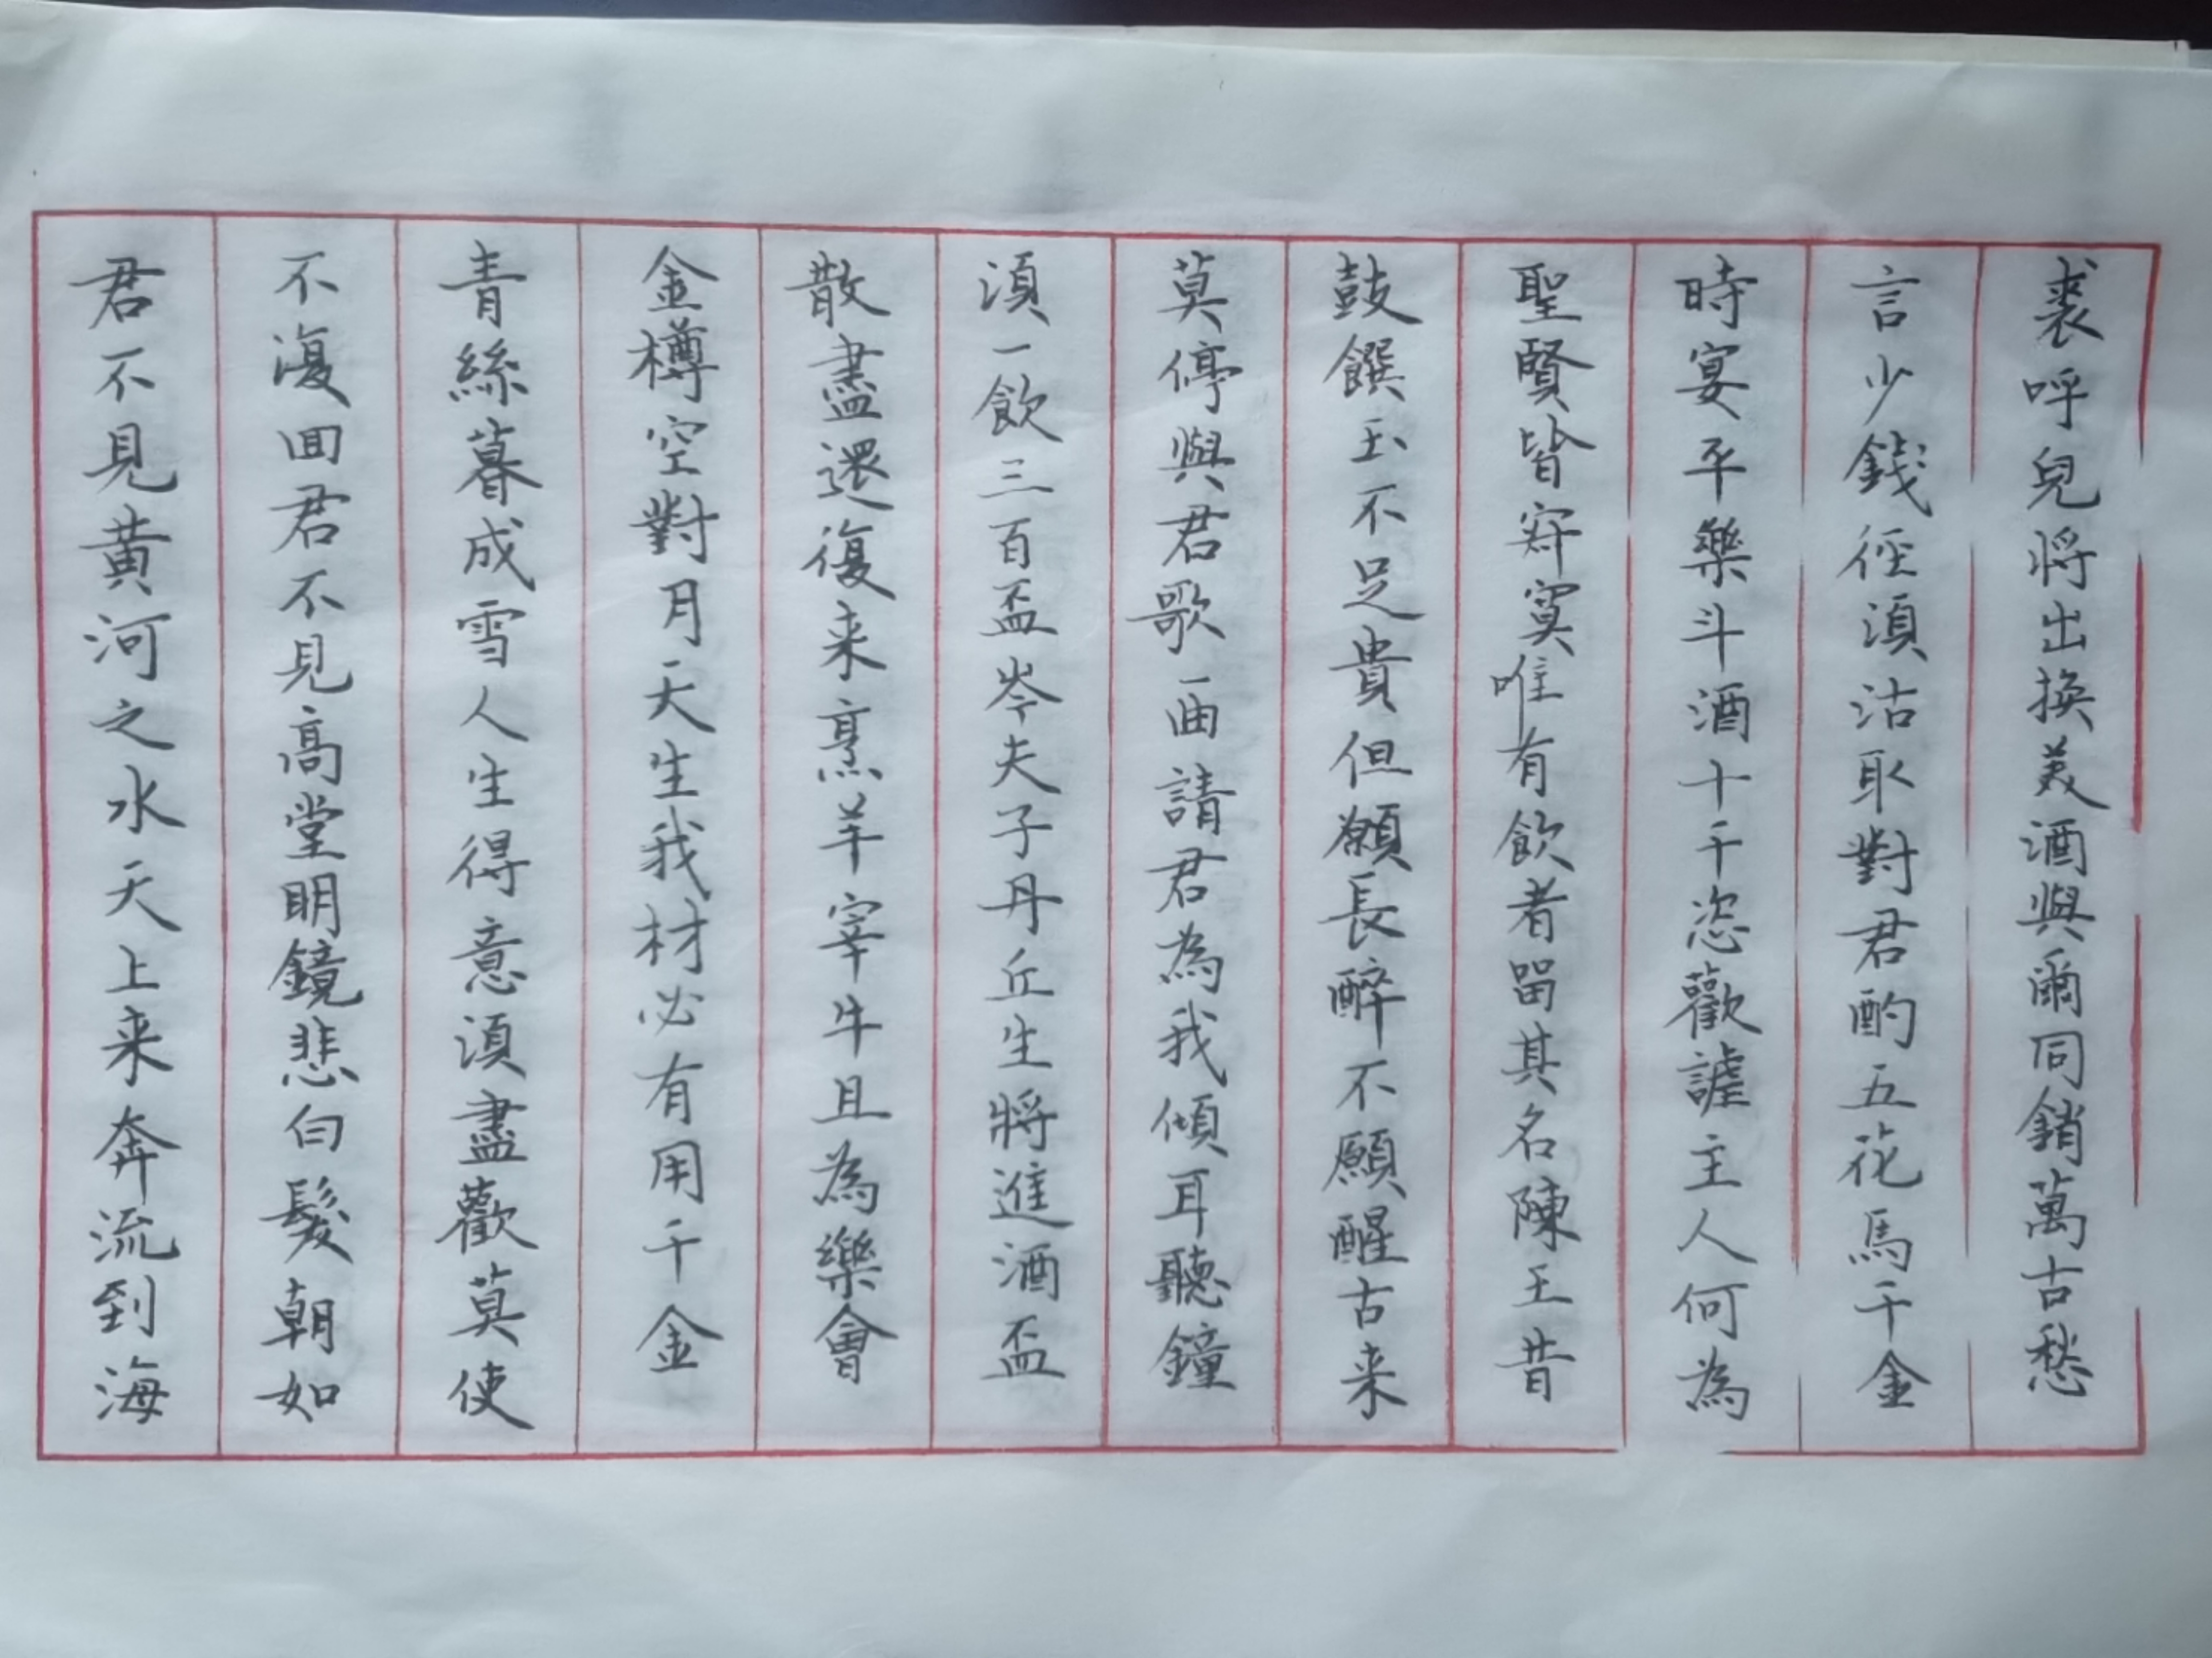 君不見黄河之水天上来奔流到海
不復回君不見高堂明鏡悲白髮朝如
青絲暮成雪人生得意須盡歡莫使
金樽空對月天生我材必有用千金
散盡還復来烹羊宰牛且為樂會
須一飲三百盃岑夫子丹丘生將進酒盃
莫停與君歌一曲請君為我傾耳聽鐘
鼓饌玉不足貴但願長醉不願醒古来
聖賢皆寂寞唯有飲者留其名陳王昔
時宴平樂斗酒十千恣歡謔主人何為
言少錢徑須沽取對君酌五花馬千金
裘呼兒將出換美酒與爾同銷萬古愁